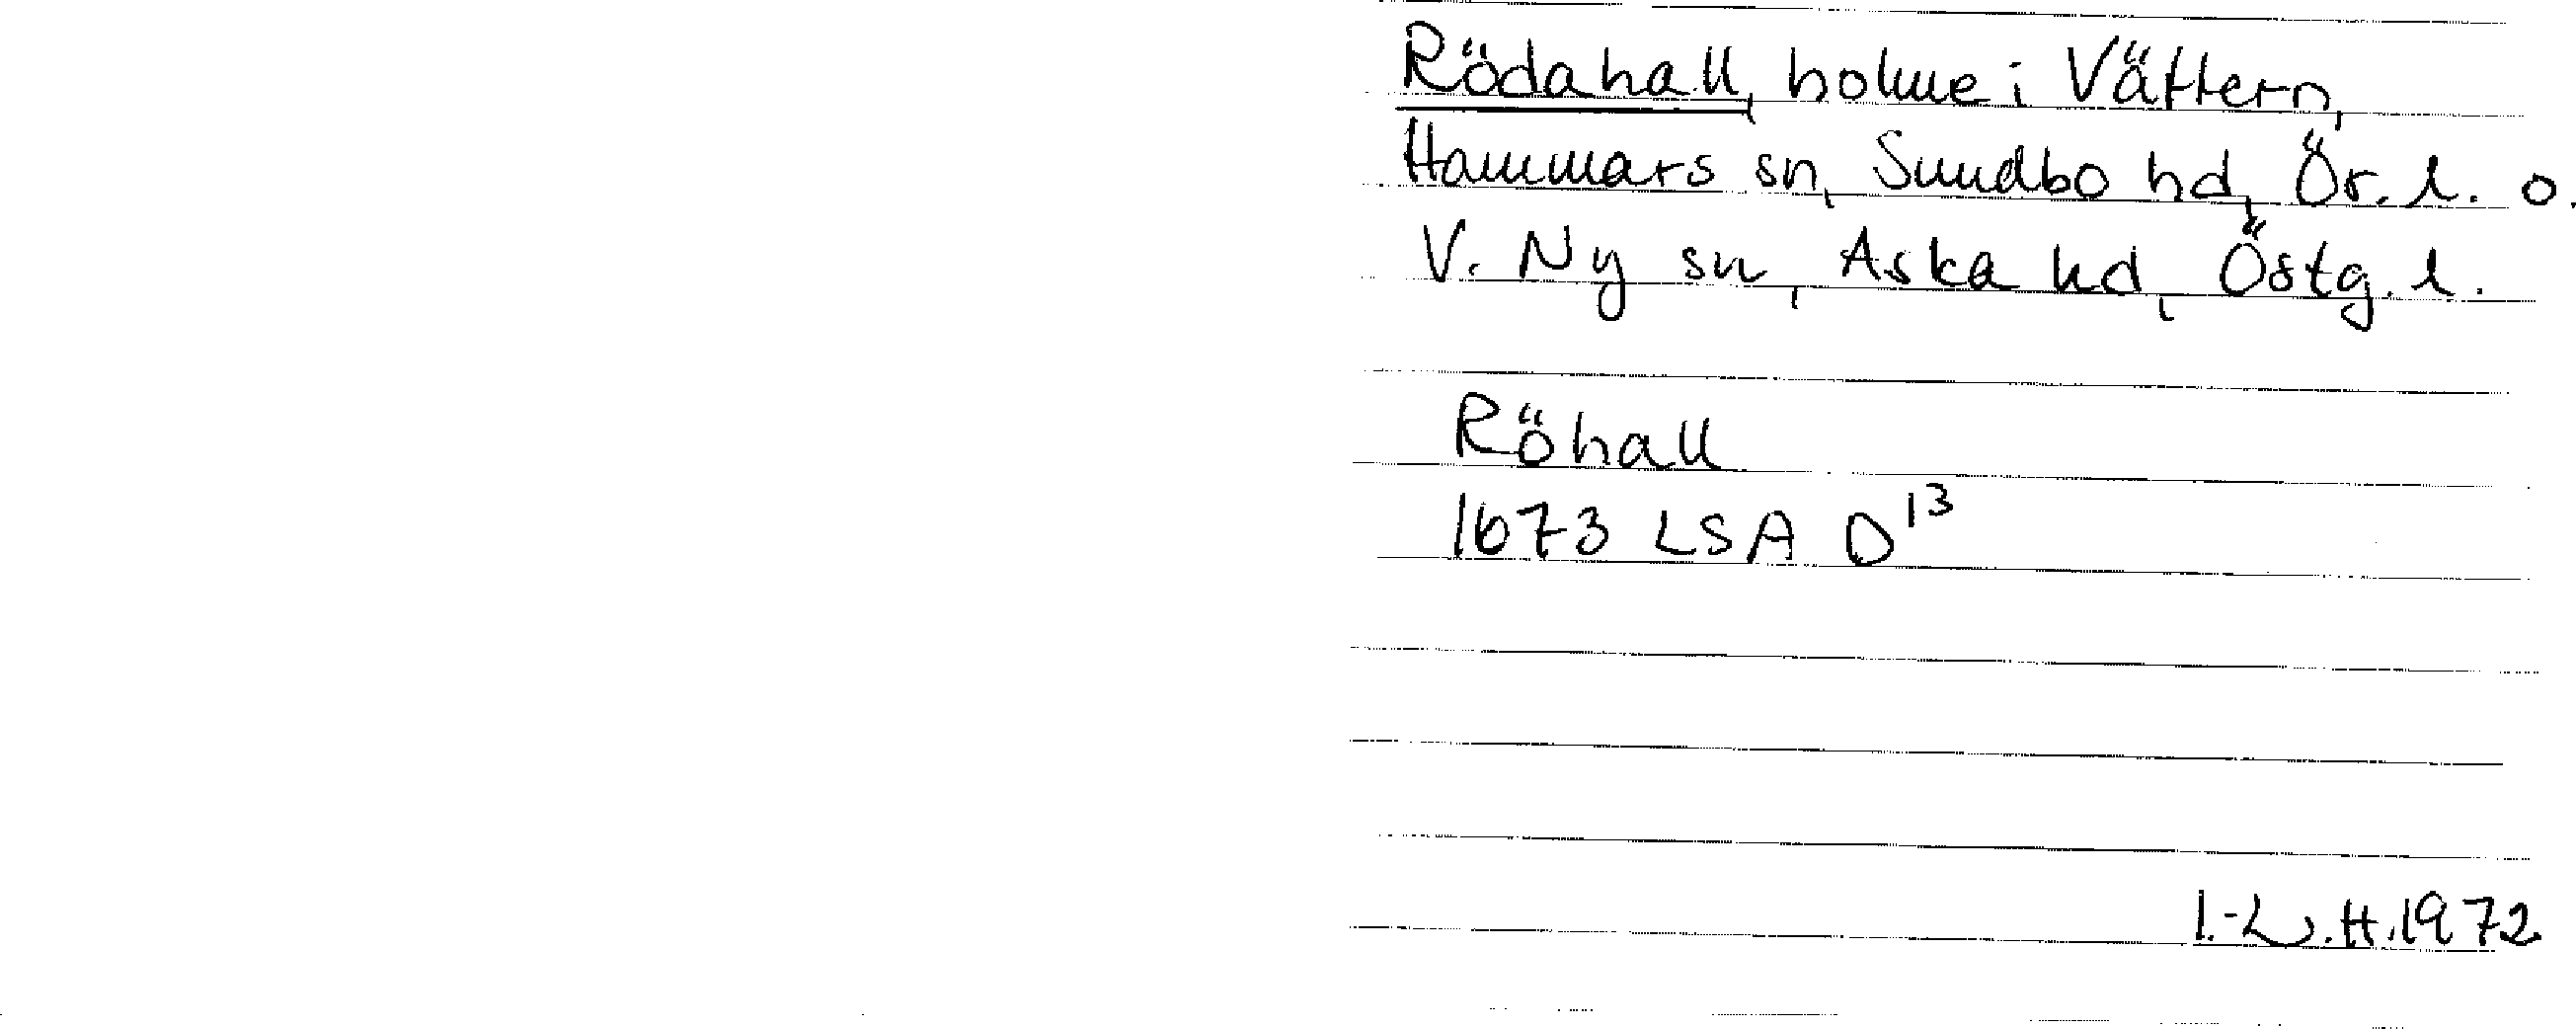 Rödahall, holme i Vättern,
Hammars sn, Sundbo hd, Ör. l. o.
V. Ny sn, Aska hd, Östg. l.
Röhall
1673 LSA D13
I.-L. H. 1972